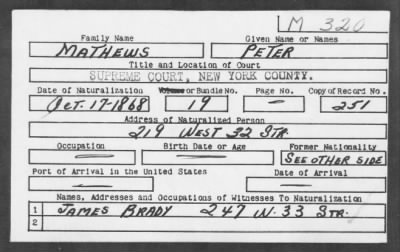 M 320
Family Name Given Name or Names
MATHEWS PETER
Title and Location of Court
SUPREME COURT, NEW YORK COUNTY.
Date of Naturalization Volume or Bundle No. Page No. Copy of Record No.
Oct. 17-1868 19 — 251
Address of Naturalized Person
219 WEST 32 STR.
Occupation Birth Date or Age Former Nationality
— — SEE OTHER SIDE
Port of Arrival in the United States Date of Arrival
— —
Names, Addresses and Occupations of Witnesses To Naturalization
1 JAMES BRADY 247 W. 33 STR.
2